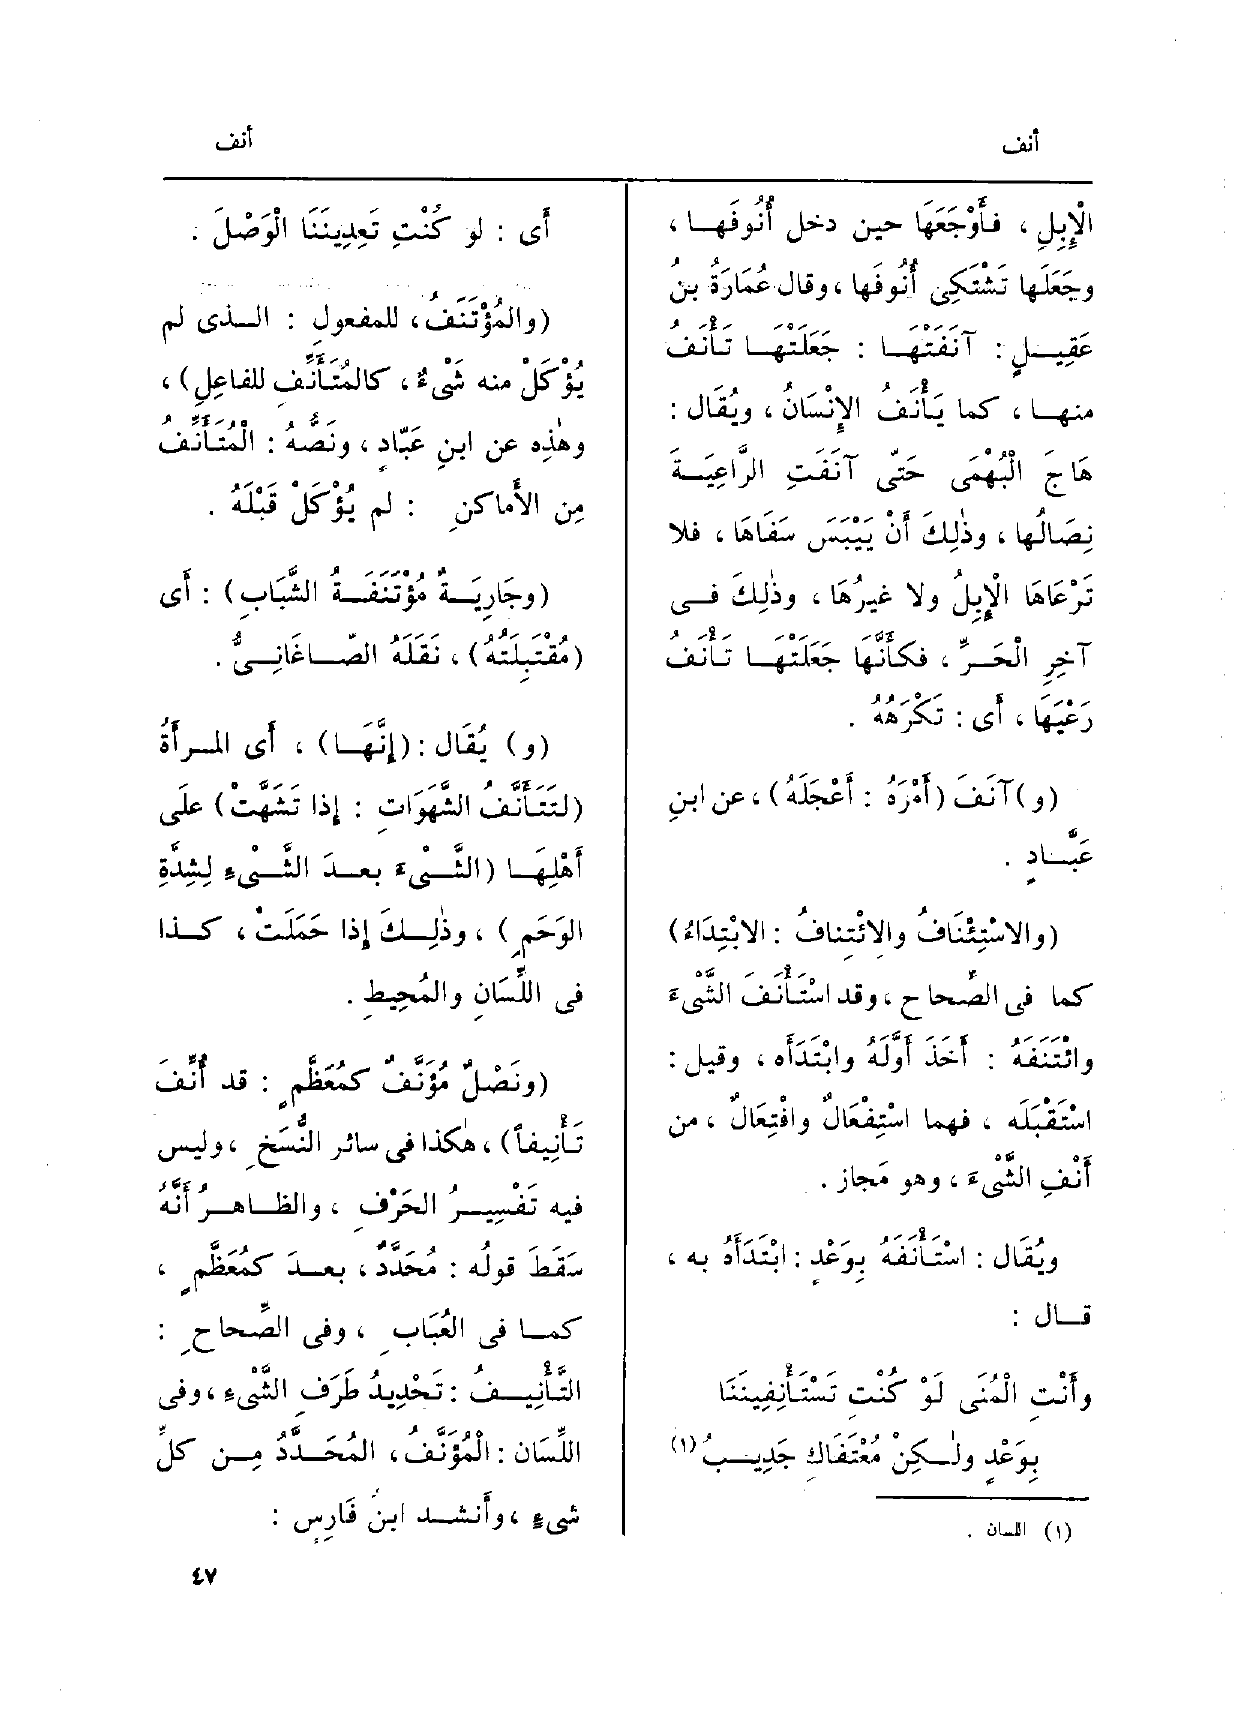 أنف
أنف
الْإِبِلِ ، فَأَوْجَعَهَا حين دخل أُنُوفَهـا ،
وجَعَلَها تَشْتَكِى أُنُوفَها ، وقال عُمَارَةُ بنُ
عَقِيـلٍ : آنَفَتْهـا : جَعَلَتْهـا تَأْنَفُ
منهـا ، كما يَأْنَفُ الإِنْسَانُ ، ويُقَال :
هَاجَ الْبُهْمَى حَتَّى آنَفَتِ الرَّاعِيَـةَ
نِصَالُها ، وذٰلِكَ أَنْ يَيْبَسَ سَفَاهَا ، فلا
تَرْعَاهَا الْإِبِلُ ولا غيرُهَا ، وذٰلِكَ فـى
آخِرِ الْحَـرِّ ، فكأَنَّهَا جَعَلَتْهـا تَأْنَفُ
رَعْيَهَا ، أَى : تَكْرَهُهُ .
(و) آنَفَ (أَمْرَهُ : أَعْجَلَهُ) ، عن ابنِ
عَبَّـادٍ .
(والاسْتِئْنَافُ والِائْتِنافُ : الابْتِدَاءُ)
كما فى الصِّحاح ، وقد اسْتَأْنَفَ الشَّىْءَ
وائْتَنَفَهُ : أَخَذَ أَوَّلَهُ وابْتَدَأَه ، وقيل :
اسْتَقْبَلَه ، فهما اسْتِفْعَالٌ وافْتِعَالٌ ، من
أَنْفِ الشَّىْءِ ، وهو مَجاز .
ويُقَال : اسْتَأْنَفَهُ بِوَعْدٍ : ابْتَدَأَهُ به ،
قـال :
وأَنْتِ الْمُنَى لَوْ كُنْتِ تَسْتَأْنِفِينَنَا
بِوَعْدٍ ولٰـكِنْ مُعْتَفَاكِ جَدِيـبُ (١)
(١) اللسان .
أَى : لو كُنْتِ تَعِدِينَنَا الْوَصْلَ .
(والمُؤْتَنَفُ ، للمفعولِ : الـذى لم
يُؤْكَلْ منه شَىْءٌ ، كالمُتَأَنَّفِ للفاعِلِ) ،
وهٰذِه عن ابنِ عَبَّادٍ ، ونَصُّهُ : الْمُتَأَنِّفُ
مِن الأَماكنِ : لم يُؤْكَلْ قَبْلَهُ .
(وجَارِيَـةٌ مُؤْتَنَفَـةُ الشَّبَابِ) : أَى
(مُقْتَبِلَتُهُ) ، نَقَلَهُ الصَّـاغَانِـىُّ .
(و) يُقَال : (إِنَّهَـا) ، أَى المـرأَةُ
(لتَتَأَنَّفُ الشَّهَوَاتِ : إِذا تَشَهَّتْ) عَلَى
أَهْلِهَـا (الشَّـىْءَ بعـدَ الشَّـىْءِ لِشِدَّةِ
الوَحَمِ) ، وذٰلِـكَ إِذا حَمَلَتْ ، كـذا
فى اللِّسَانِ والمُحِيطِ .
(ونَصْلٌ مُؤَنَّفٌ كمُعَظَّمٍ : قد أُنِّفَ
تَأْنِيفاً) ، هٰكذا فى سائر النُّسَخِ ، وليس
فيه تَفْسِيـرُ الحَرْفِ ، والظـاهـرُ أَنَّهُ
سَقَطَ قولُه : مُحَدَّدٌ ، بعـدَ كمُعَظَّمٍ ،
كمـا فى العُبَابِ ، وفى الصِّحاحِ :
التَّأْنِيـفُ : تَحْدِيدُ طَرَفِ الشَّىْءِ ، وفى
اللِّسَان : الْمُؤَنَّفُ ، المُحَـدَّدُ مِـن كلِّ
شىءٍ ، وأَنشـد ابنُ فَارِسٍ :
٤٧